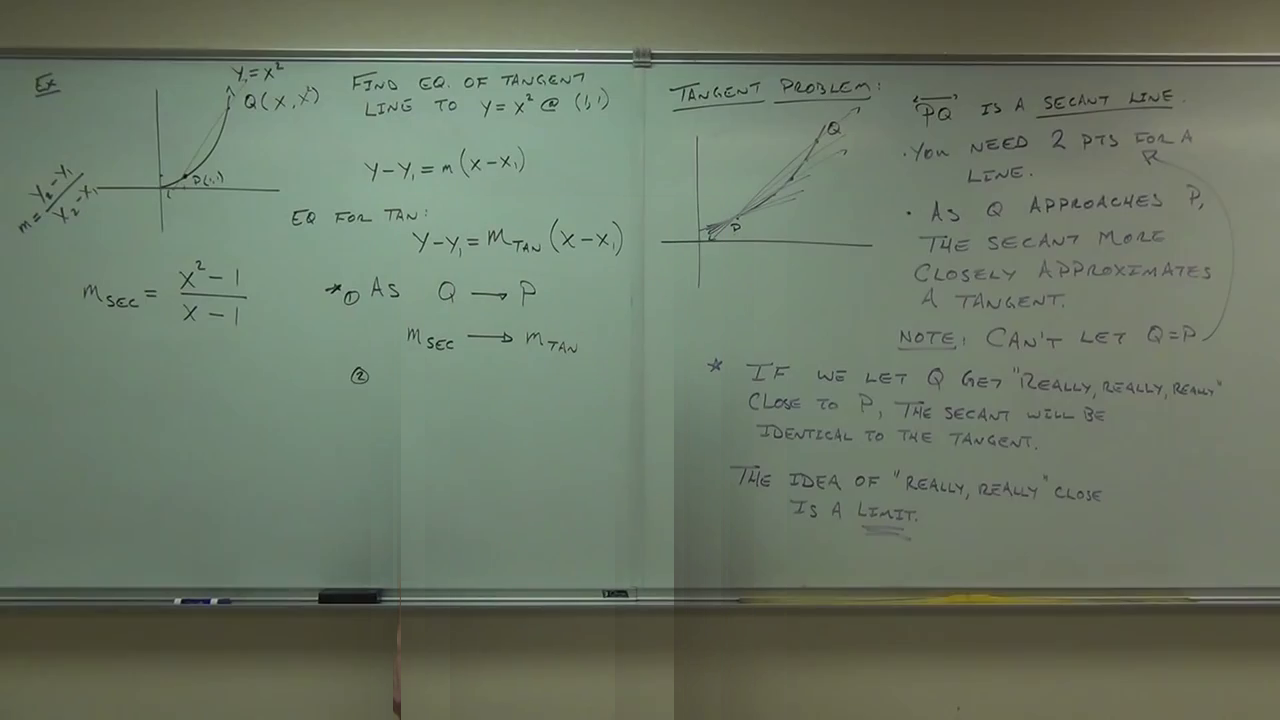 Ex
y = x²
Q(x, x²)
P(1,1)
m = y₂ - y₁ / x₂ - x₁
m SEC = x² - 1 / x - 1
FIND EQ. OF TANGENT
LINE TO y = x² @ (1,1)
y - y₁ = m(x - x₁)
EQ FOR TAN:
y - y₁ = m TAN (x - x₁)
* ① AS Q → P
m SEC → m TAN
②
TANGENT PROBLEM:
Q
P
"PQ" IS A SECANT LINE.
· YOU NEED 2 PTS FOR A
LINE.
· AS Q APPROACHES P,
THE SECANT MORE
CLOSELY APPROXIMATES
A TANGENT.
NOTE: CAN'T LET Q=P
* IF WE LET Q GET "REALLY, REALLY, REALLY"
CLOSE TO P, THE SECANT WILL BE
IDENTICAL TO THE TANGENT.
THE IDEA OF "REALLY, REALLY" CLOSE
IS A LIMIT.